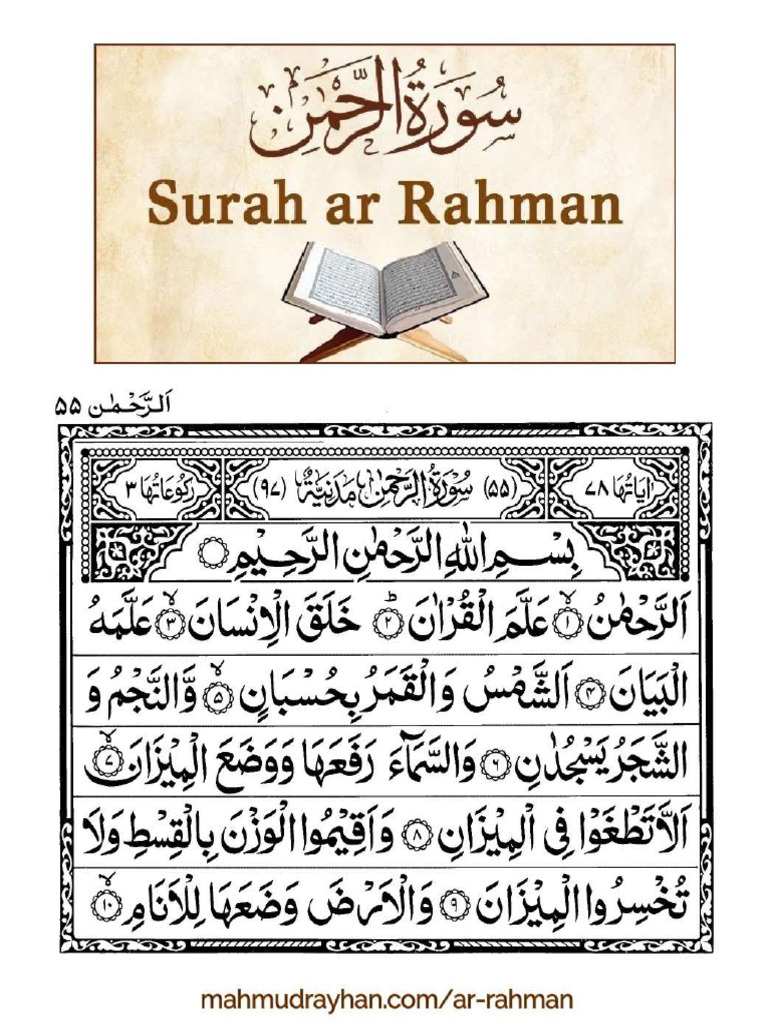 سُورَةُ الرَّحْمٰن
Surah ar Rahman
اَلرَّحْمٰن ۵۵
اٰيَاتُهَا ۷۸
(۵۵) سُوْرَةُ الرَّحْمٰنِ مَدَنِيَّةٌ (۹۷)
رُكُوْعَاتُهَا ۳
بِسْمِ اللّٰهِ الرَّحْمٰنِ الرَّحِيْمِ ○
اَلرَّحْمٰنُ ۙ﴿۱﴾ عَلَّمَ الْقُرْاٰنَ ؕ﴿۲﴾ خَلَقَ الْاِنْسَانَ ۙ﴿۳﴾ عَلَّمَهُ
الْبَيَانَ ﴿۴﴾ اَلشَّمْسُ وَالْقَمَرُ بِحُسْبَانٍ ۙ﴿۵﴾ وَّالنَّجْمُ وَ
الشَّجَرُ يَسْجُدٰنِ ﴿۶﴾ وَالسَّمَآءَ رَفَعَهَا وَوَضَعَ الْمِيْزَانَ ۙ﴿۷﴾
اَلَّا تَطْغَوْا فِى الْمِيْزَانِ ﴿۸﴾ وَاَقِيْمُوا الْوَزْنَ بِالْقِسْطِ وَلَا
تُخْسِرُوا الْمِيْزَانَ ﴿۹﴾ وَالْاَرْضَ وَضَعَهَا لِلْاَنَامِ ۙ﴿۱۰﴾
mahmudrayhan.com/ar-rahman